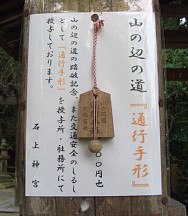 山の辺の道『通行手形』
山の辺の道の踏破記念、また交通安全のしるし
として『通行手形』を授与所・社務所にて
授与しております。
００円也
石上神宮